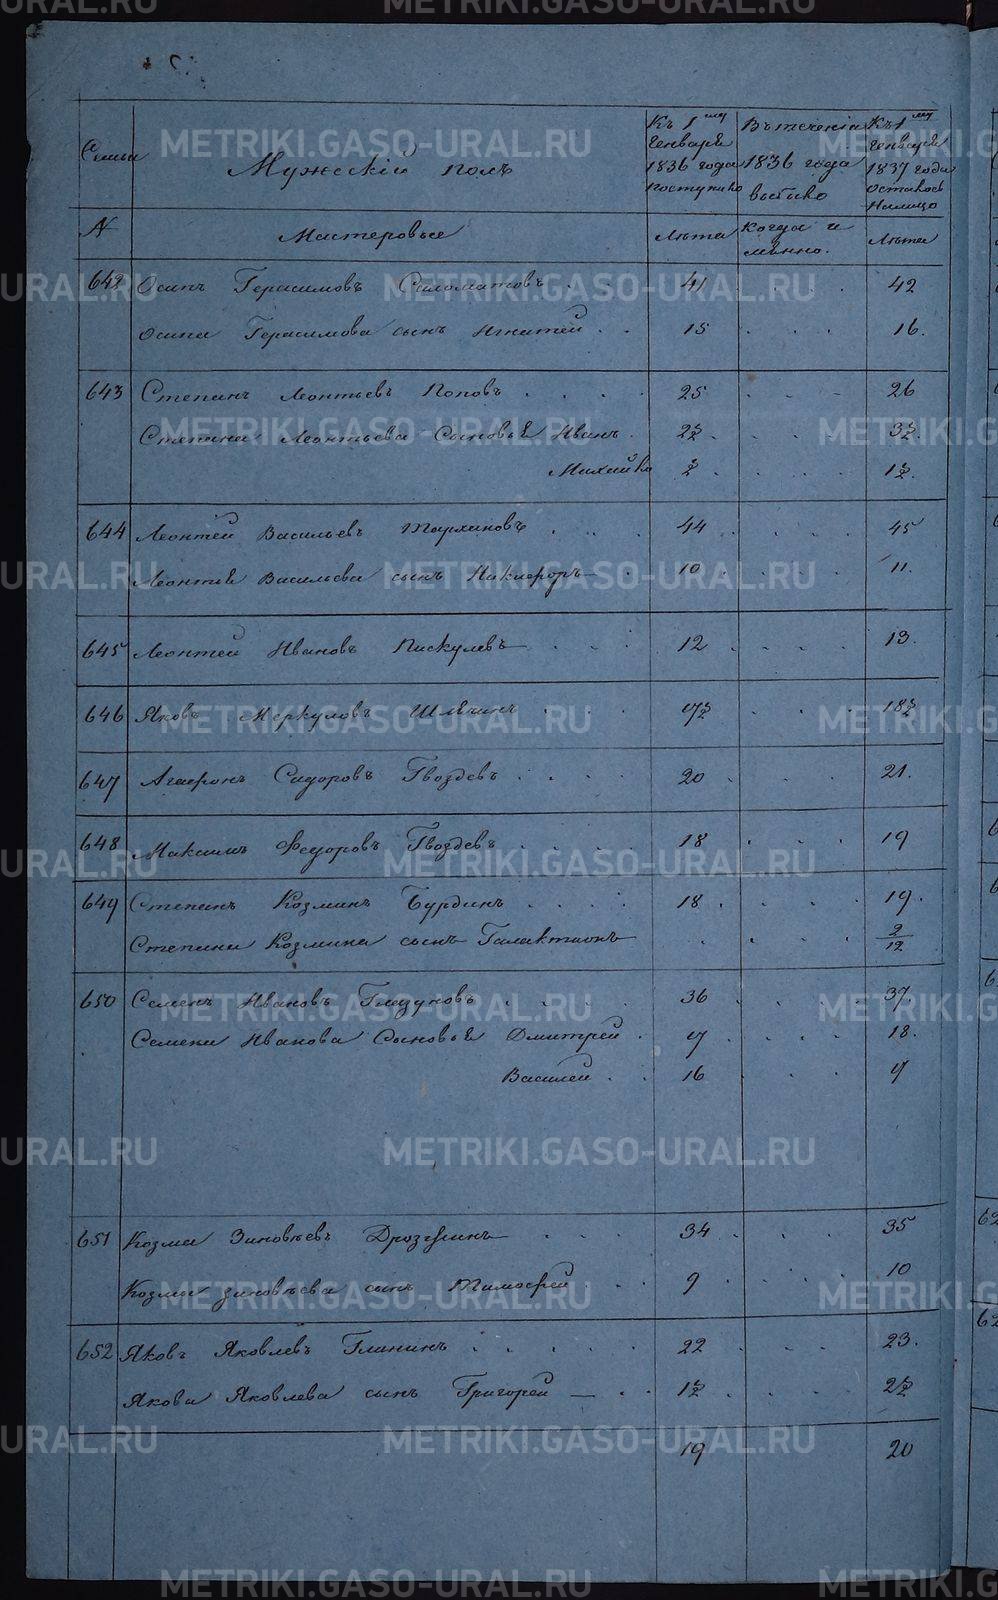 Семьи
Мужескій полъ
Къ 1му Генваря 1836 года поступило
Въ теченіи 1836 года выбыло
Къ 1му Генваря 1837 года осталось Налицо
№
Мастеровые
Лѣта
когда и имѣнно.
Лѣта
642 Осипъ Герасимовъ Саломатовъ . . 41 . . . 42
Осипа Герасимова сынъ Игнатей . . 15 . . . 16.
643 Степанъ Леонтьевъ Поповъ . . . . 25 . . . 26
Степана Леонтьева Сыновья Иванъ . 2½ . . . 3½.
Михайло ½ . . . 1½.
644 Леонтей Васильевъ Тархановъ . . . 44 . . . 45
Леонтья Васильева сынъ Никифоръ — . 10 . . . 11.
645 Леонтей Ивановъ Пискулевъ . . . 12 . . . 13.
646 Яковъ Меркуловъ . . . 17½ . . . 18½
647 Агафонъ Сидоровъ Гвоздевъ . . . . 20 . . . 21.
648 Максимъ Федоровъ Гвоздевъ . . . . 18 . . . 19
649 Степанъ Козминъ Бурдинъ . . . . 18 . . . 19.
Степана Козмина сынъ Галактионъ . . . . 2/12
650 Семенъ Ивановъ Глазуновъ . . . . 36 . . . 37.
Семена Иванова Сыновья Дмитрей . 17 . . . 18.
Василей . . 16 . . . 17
651 Козма Зиновьевъ . . . 34 . . . 35
Козмы Зиновьева сынъ Тимофей . . . 9 . . . 10
652 Яковъ Яковлевъ Гланинъ . . . . . 22 . . . 23.
Якова Яковлева сынъ Григорей — . . 1½ . . . 2½
19 20
METRIKI.GASO-URAL.RU